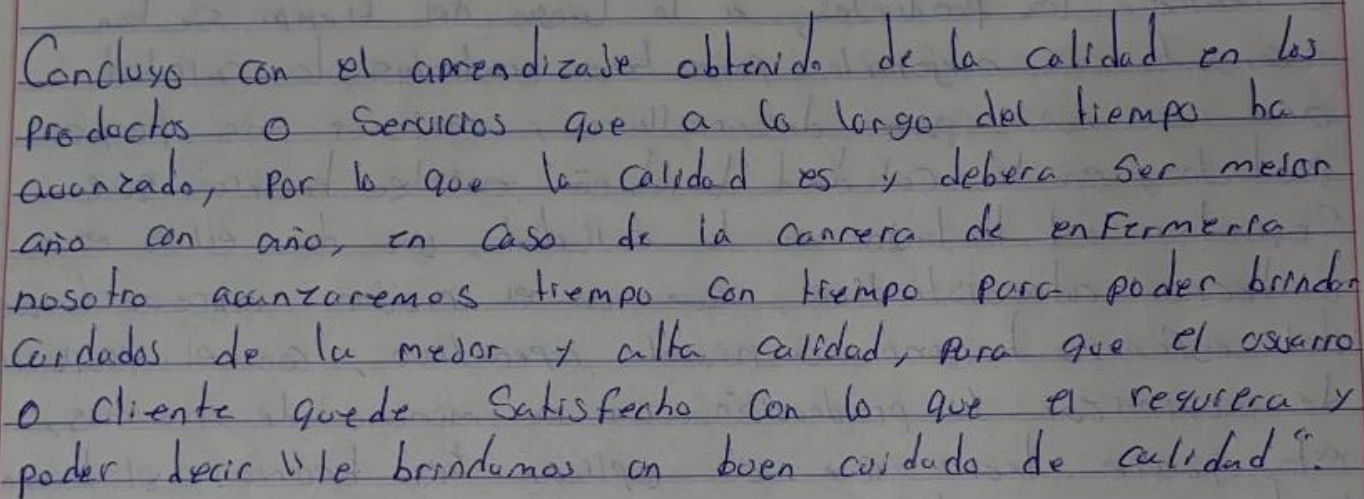 Concluyo con el aprendizaje obtenido de la calidad en los
productos o servicios que a lo largo del tiempo ha
avanzado, por lo que la calidad es y debera ser mejor
año con año, en caso de la carrera de enfermería
nosotro avanzaremos tiempo con tiempo para poder brindar
cuidados de la mejor y alta calidad, para que el usuario
o cliente quede satisfecho con lo que el requiera y
poder decir "le brindamos un buen cuidado de calidad".